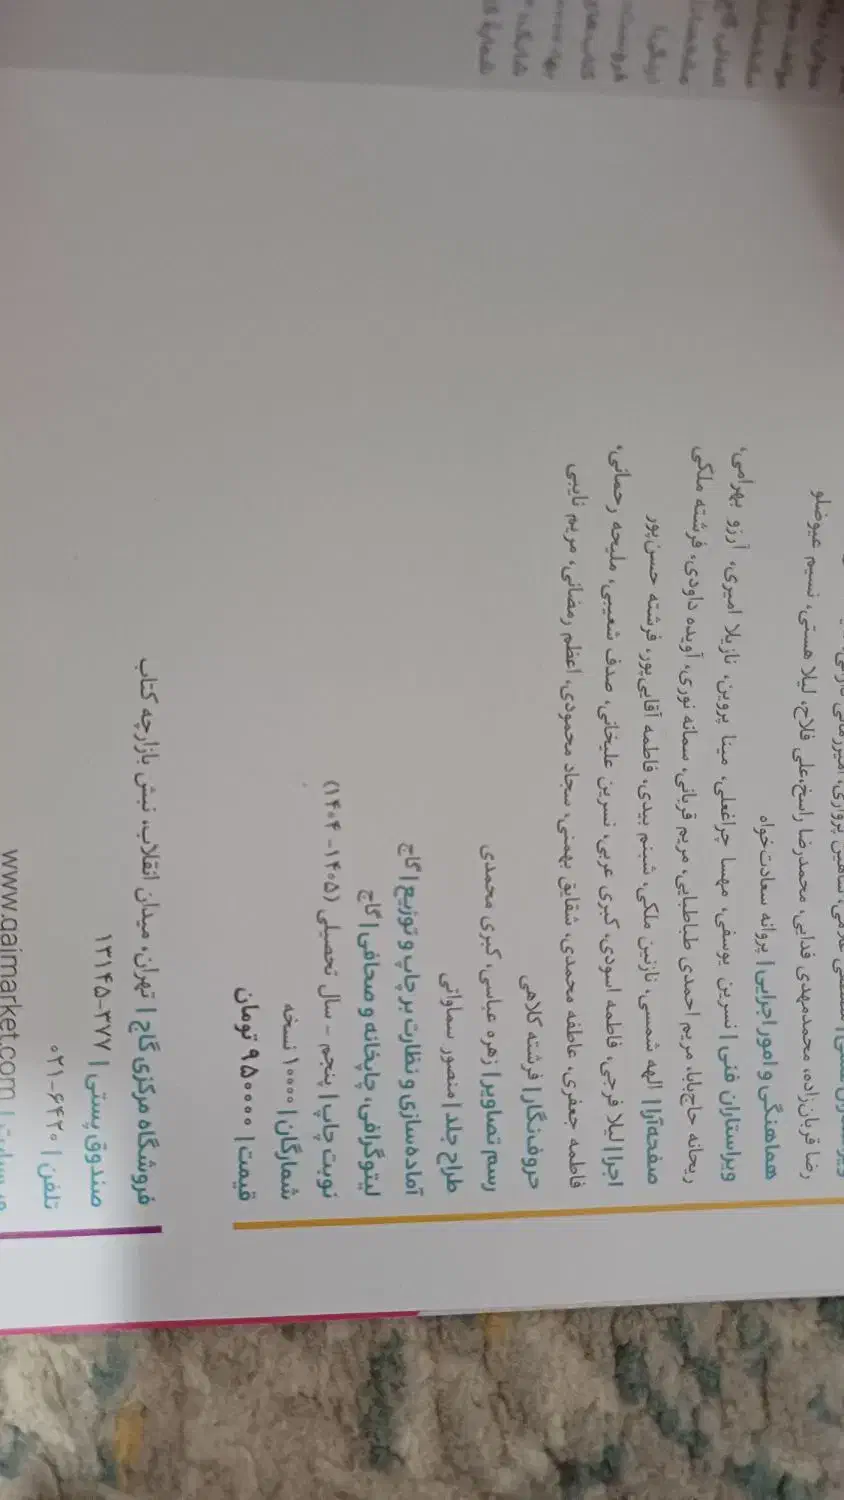 رضا قربان‌زاده، محمدمهدی فدایی، محمدرضا راسخ، علی فلاح، لیلا هستی، نسیم عیوضلو
هماهنگی و امور اجرایی | پروانه سعادت‌خواه
ویراستاران فنی | نسرین یوسفی، مهسا چراغعلی، مینا پروین، نازیلا امیری، آرزو بهرامی،
ریحانه حاج‌بابا، مریم احمدی طباطبایی، مریم قربانی، سمانه نوری، آویده داودی، فرشته ملکی
صفحه‌آرا | الهه شمسی، نازنین ملکی، شبنم بیدی، فاطمه آقایی‌پور، فرشته حسن‌پور
اجرا | لیلا فرجی، فاطمه اسودی، کبری عربی، نسرین علیخانی، صدف شعیبی، ملیحه رحمانی،
فاطمه جعفری، عاطفه محمدی، شقایق بهمنی، سجاد محمودی، اعظم رمضانی، مریم نایبی
حروف‌نگار | فرشته کلاهی
رسم تصاویر | زهره عباسی، کبری محمدی
طراح جلد | منصور سماواتی
آماده‌سازی و نظارت بر چاپ و توزیع | گاج
لیتوگرافی، چاپخانه و صحافی | گاج
نوبت چاپ | پنجم - سال تحصیلی (۱۴۰۵-۱۴۰۴)
شمارگان | ۱۰۰۰۰ نسخه
قیمت | ۹۵۰۰۰۰ تومان
فروشگاه مرکزی گاج | تهران، میدان انقلاب، نبش بازارچه کتاب
صندوق پستی | ۳۷۷-۱۳۱۴۵
تلفن | ۶۴۲۰-۰۲۱
www.gajmarket.com |